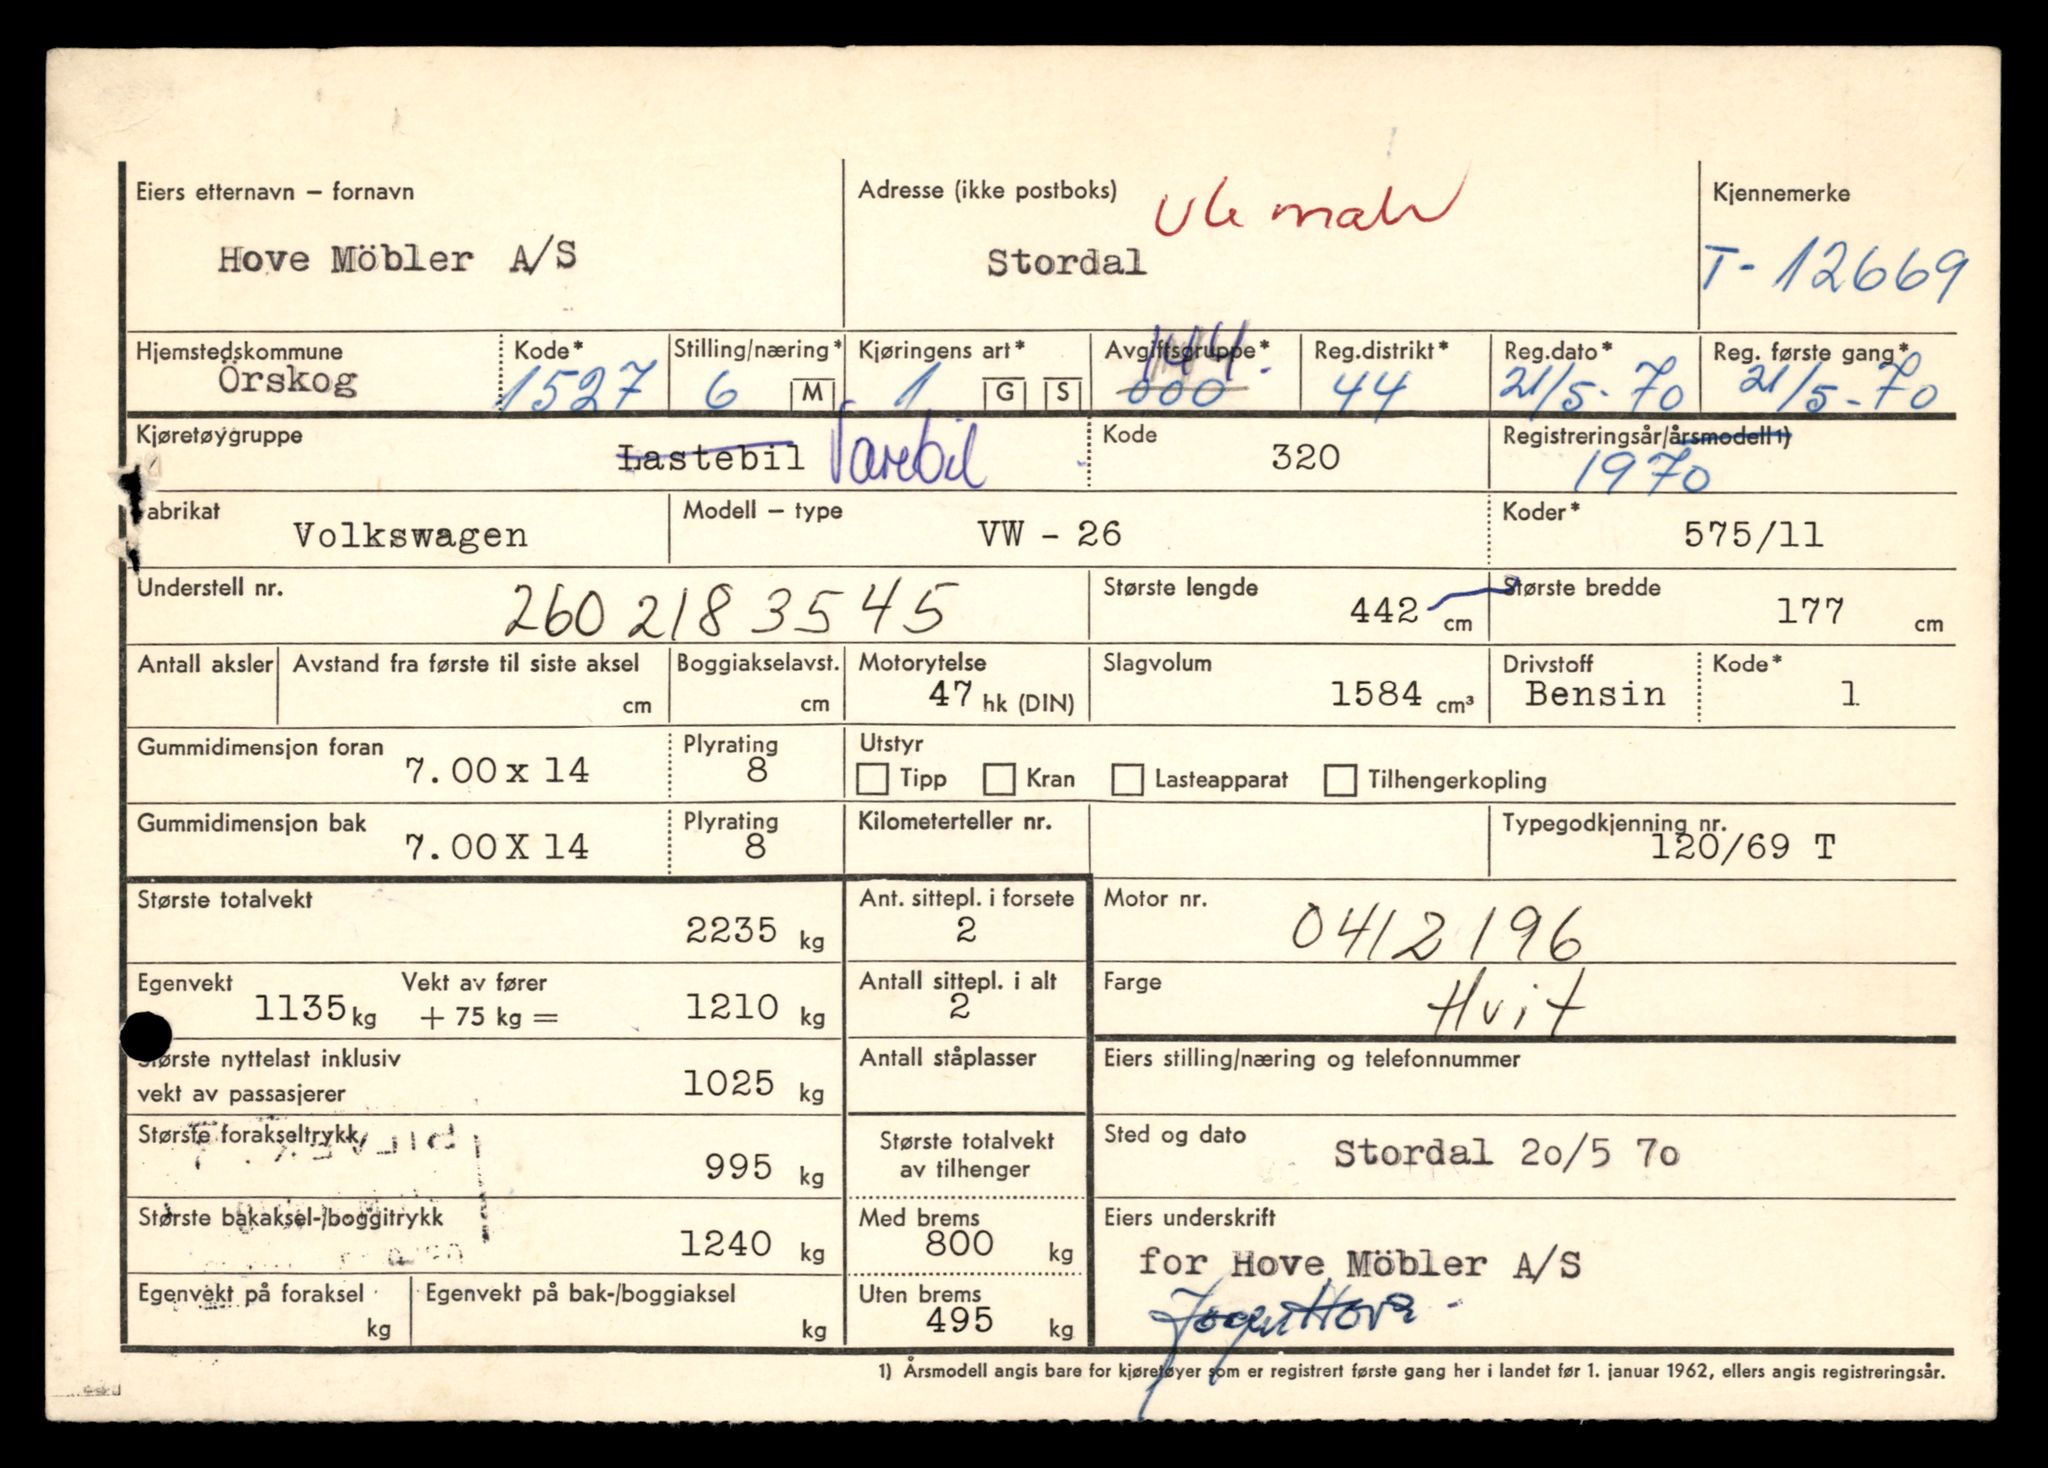 Eiers etternavn – fornavn
Hove Möbler A/S
Adresse (ikke postboks)
Stordal
Kjennemerke
T-12669
Hjemstedskommune
Örskog
Kode*
1527
Stilling/næring*
6 M
Kjøringens art*
1 G S
Avgiftsgruppe*
144.
000
Reg.distrikt*
44
Reg.dato*
21/5-70
Reg. første gang*
21/5-70
Kjøretøygruppe
Lastebil Varebil
Kode
320
Registreringsår/årsmodell1)
1970
Fabrikat
Volkswagen
Modell – type
VW - 26
Koder*
575/11
Understell nr.
2602183545
Største lengde
442 cm
Største bredde
177 cm
Antall aksler
Avstand fra første til siste aksel
cm
Boggiakselavst.
cm
Motorytelse
47 hk (DIN)
Slagvolum
1584 cm³
Drivstoff
Bensin
Kode*
1
Gummidimensjon foran
7.00 x 14
Plyrating
8
Utstyr
Tipp Kran Lasteapparat Tilhengerkopling
Gummidimensjon bak
7.00 X 14
Plyrating
8
Kilometerteller nr.
Typegodkjenning nr.
120/69 T
Største totalvekt
2235 kg
Ant. sittepl. i forsete
2
Motor nr.
0412196
Egenvekt
1135 kg
Vekt av fører
+ 75 kg =
1210 kg
Antall sittepl. i alt
2
Farge
Hvit
Største nyttelast inklusiv
vekt av passasjerer
1025 kg
Antall ståplasser
Eiers stilling/næring og telefonnummer
Største forakseltrykk
995 kg
Største totalvekt
av tilhenger
Sted og dato
Stordal 20/5 70
Største bakaksel-/boggitrykk
1240 kg
Med brems
800 kg
Eiers underskrift
for Hove Möbler A/S
Egenvekt på foraksel
kg
Egenvekt på bak-/boggiaksel
kg
Uten brems
495 kg
1) Årsmodell angis bare for kjøretøyer som er registrert første gang her i landet før 1. januar 1962, ellers angis registreringsår.